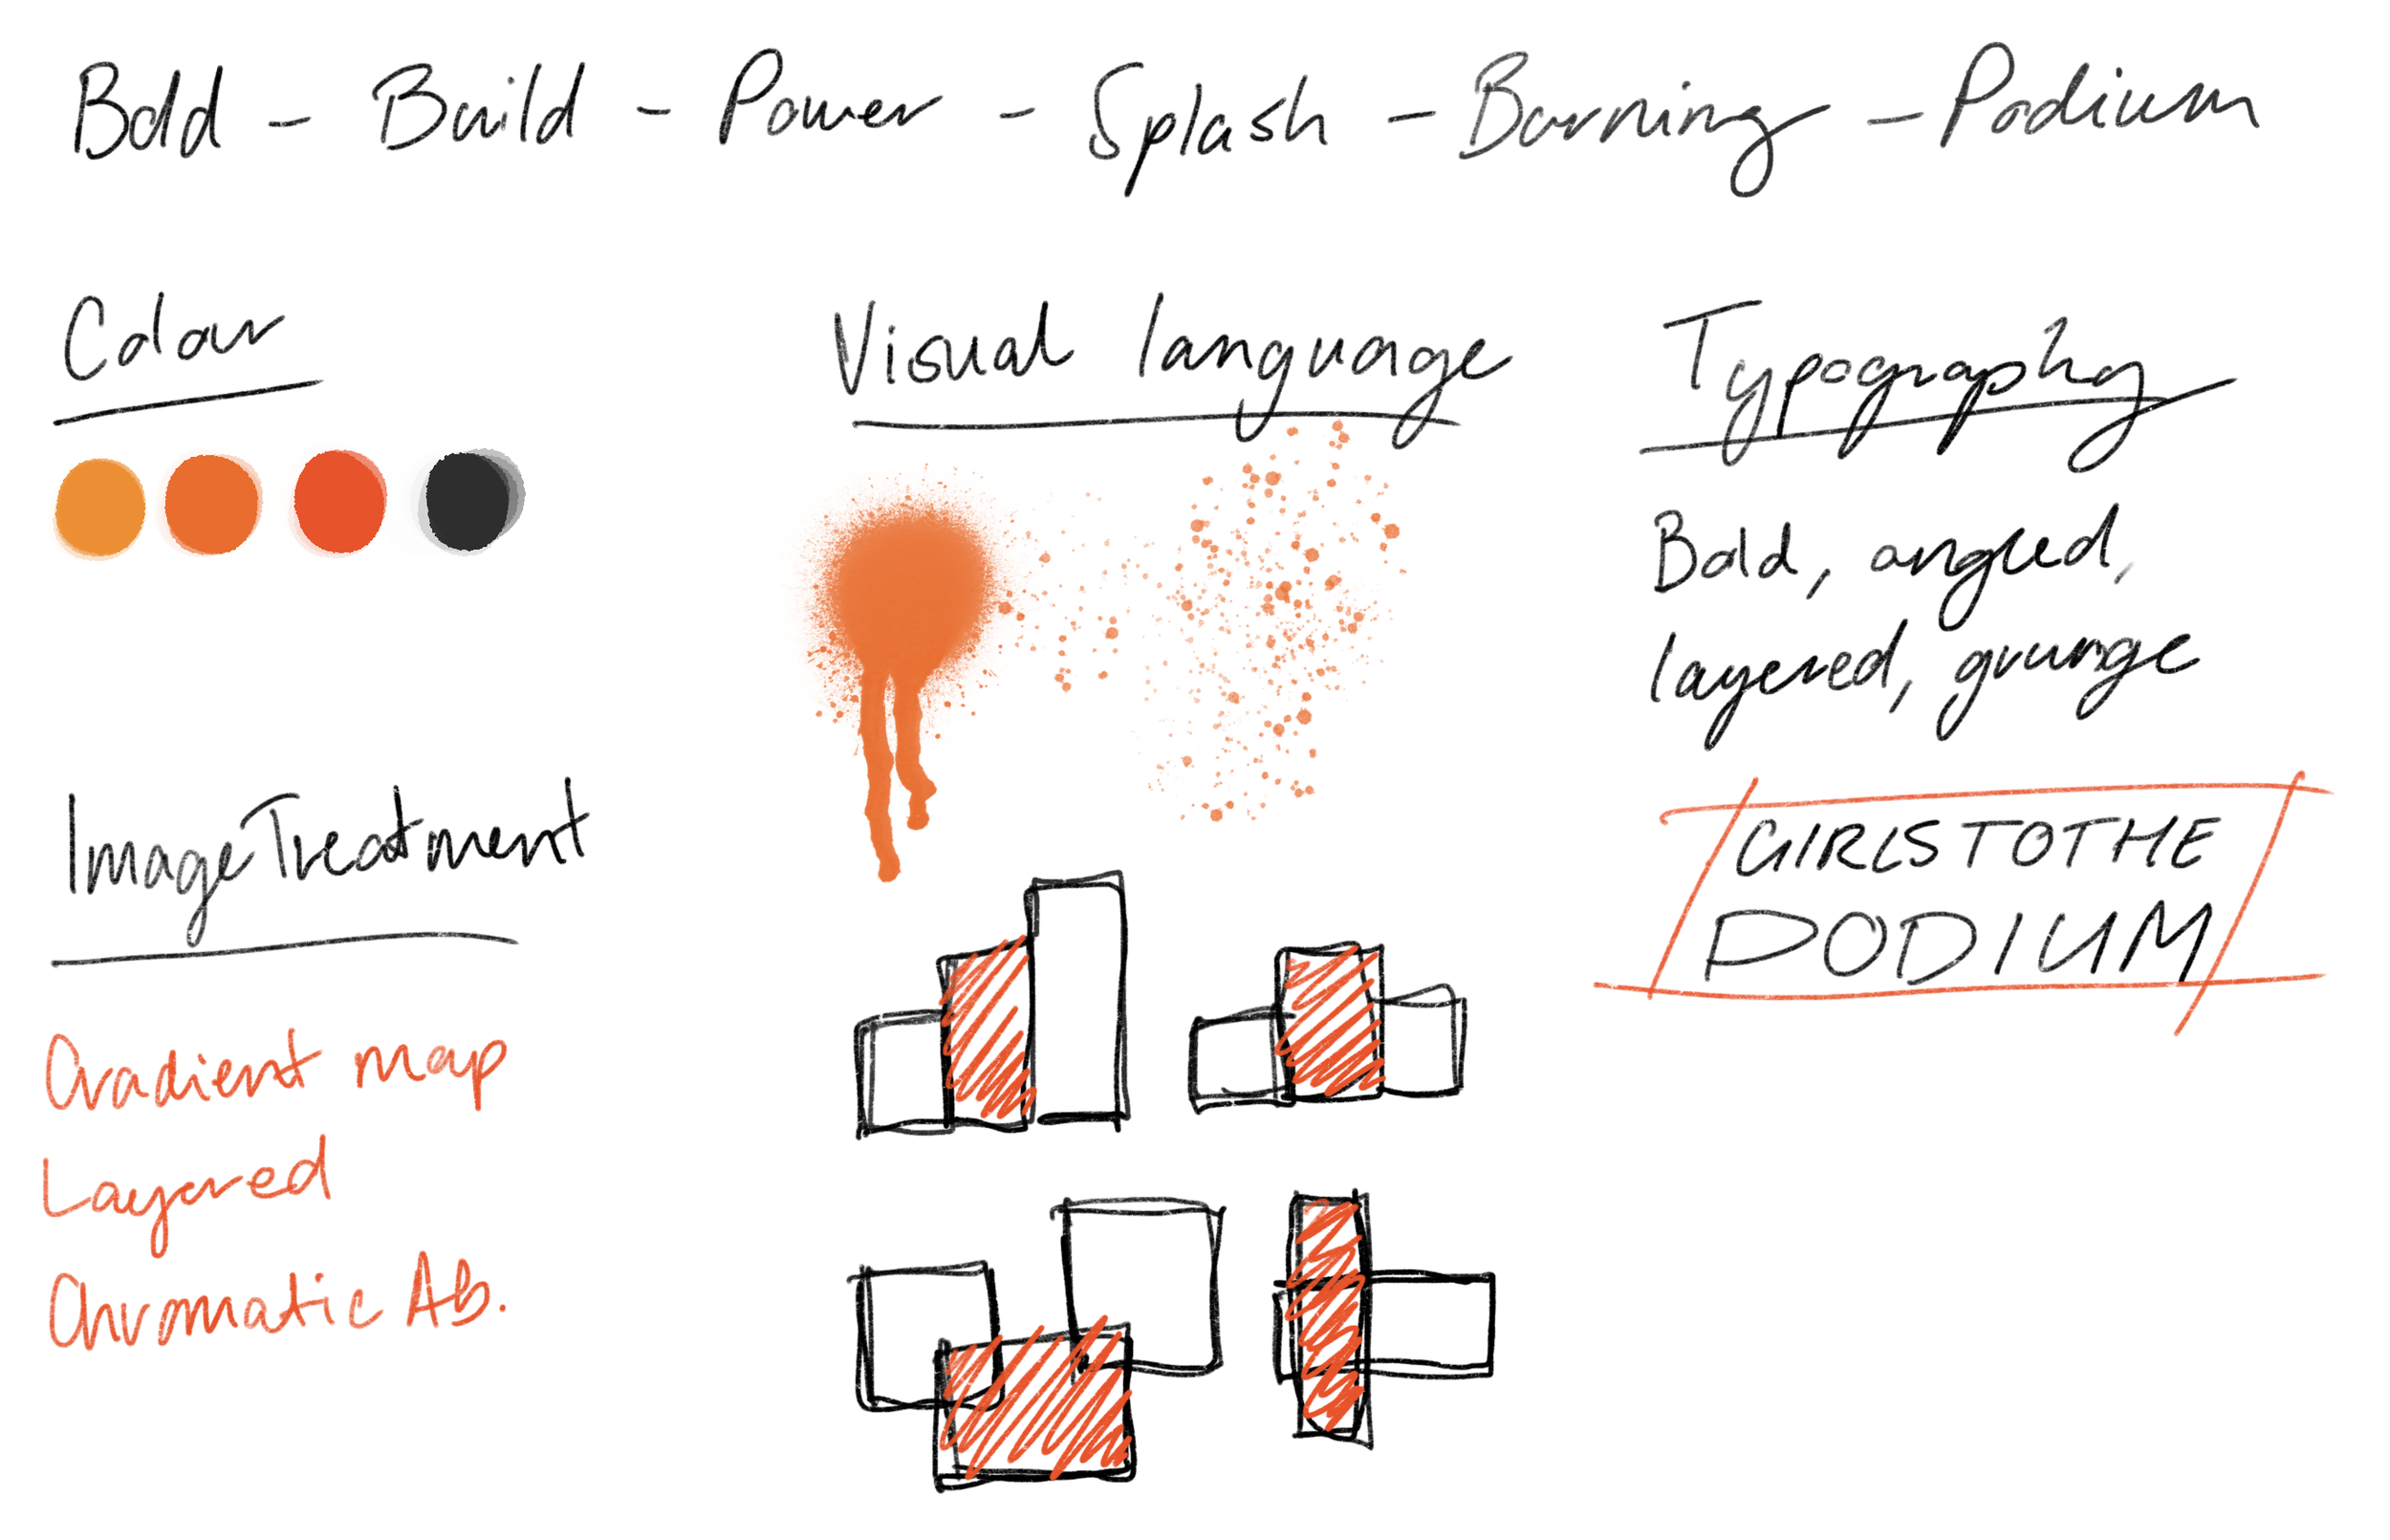 Bold - Build - Power - Splash - Burning - Podium
Colour
Visual language
Typography
Bold, angled,
layered, grunge
Image Treatment
GIRLS TO THE
PODIUM
Gradient map
Layered
Chromatic Ab.